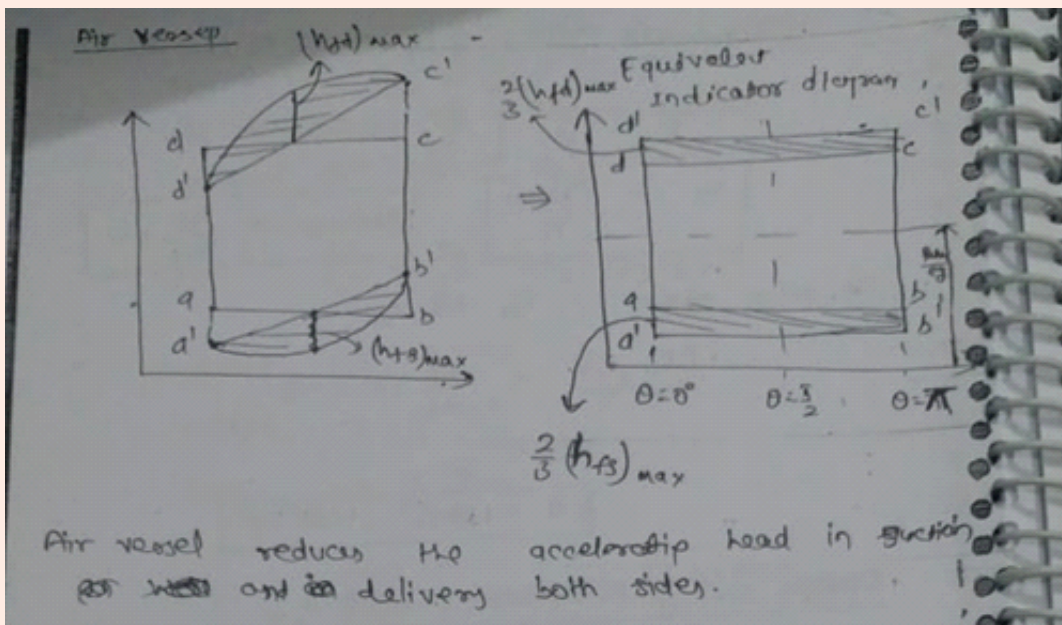 Air vessep
(hfd) max
c'
d
c
d'
a
b'
b
a'
(hfs) max
⇒
Equivalent
Indicator diagram
2/3 (hfd) max
d'
c'
d
c
a
b
a'
b'
θ=0°
θ=π/2
θ=π
2/3 (hfs) max
Air vessel reduces the acceleratip head in suction
and delivery both sides.